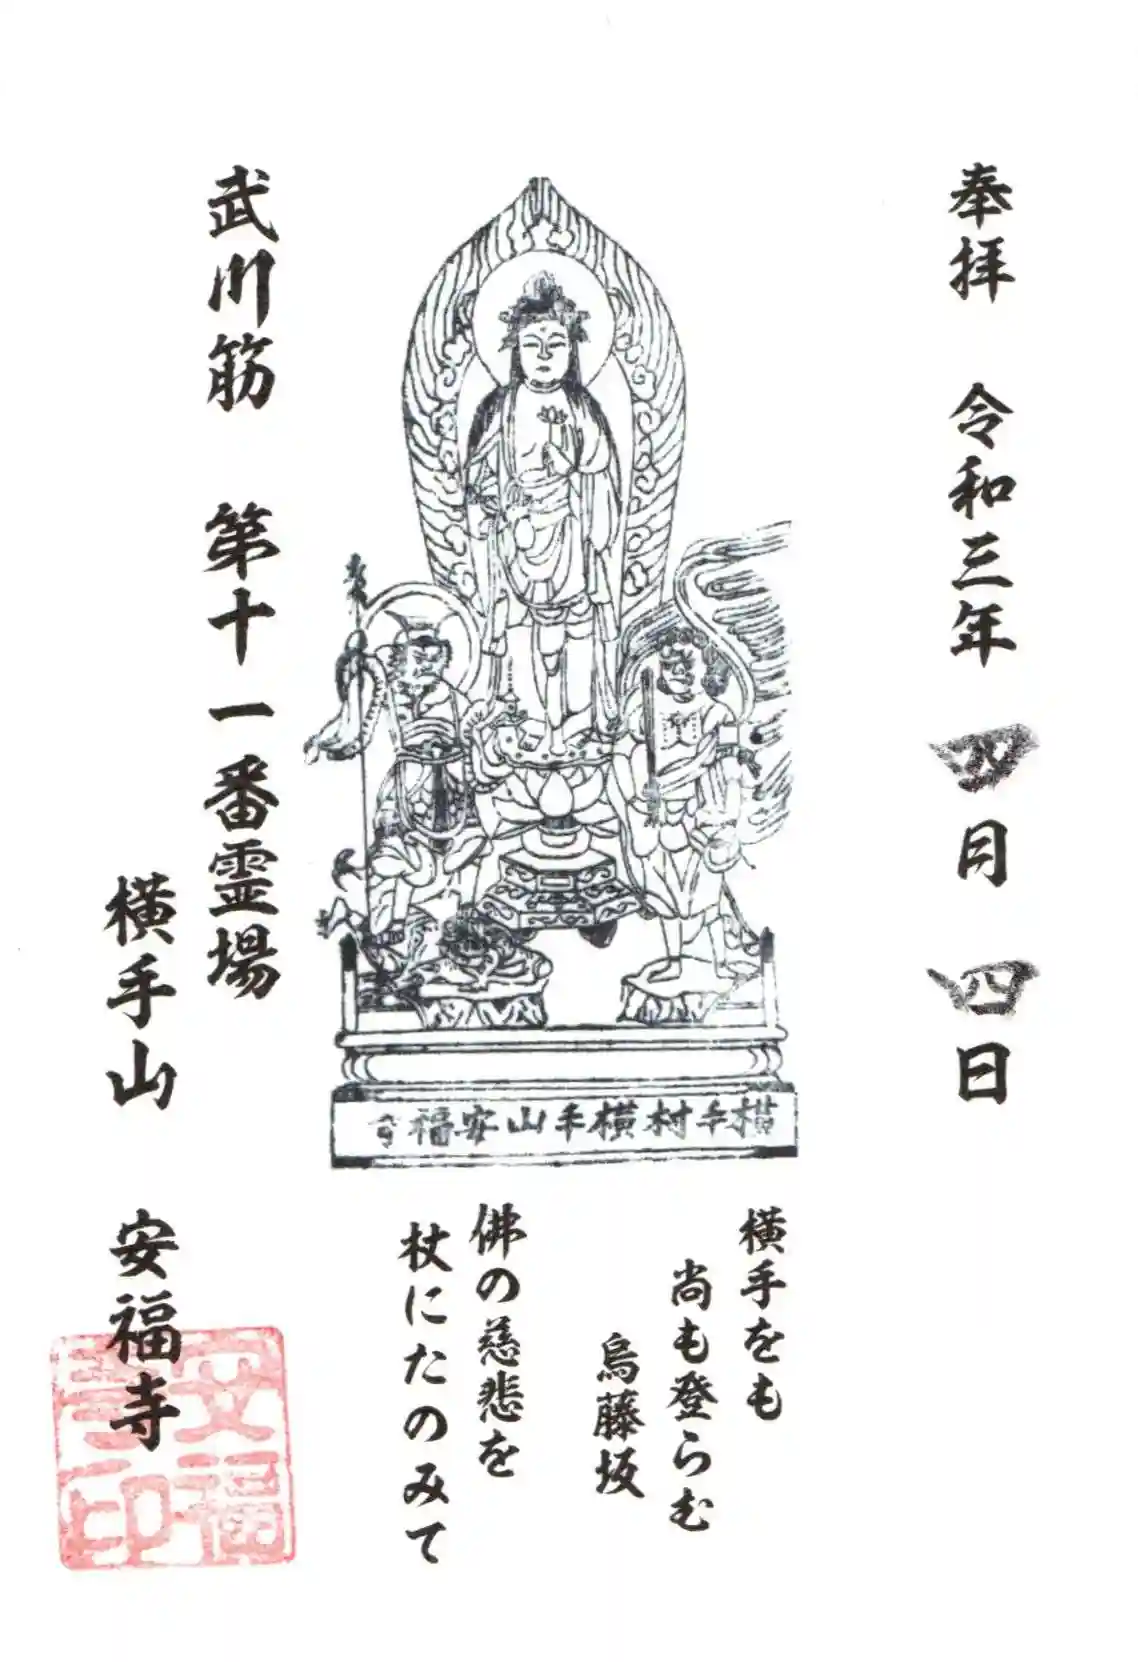 奉拝 令和三年 四月 四日
横手村横手山安福寺
横手をも
尚も登らむ
烏藤坂
佛の慈悲を
杖にたのみて
武川筋 第十一番霊場
横手山 安福寺
安福寺印